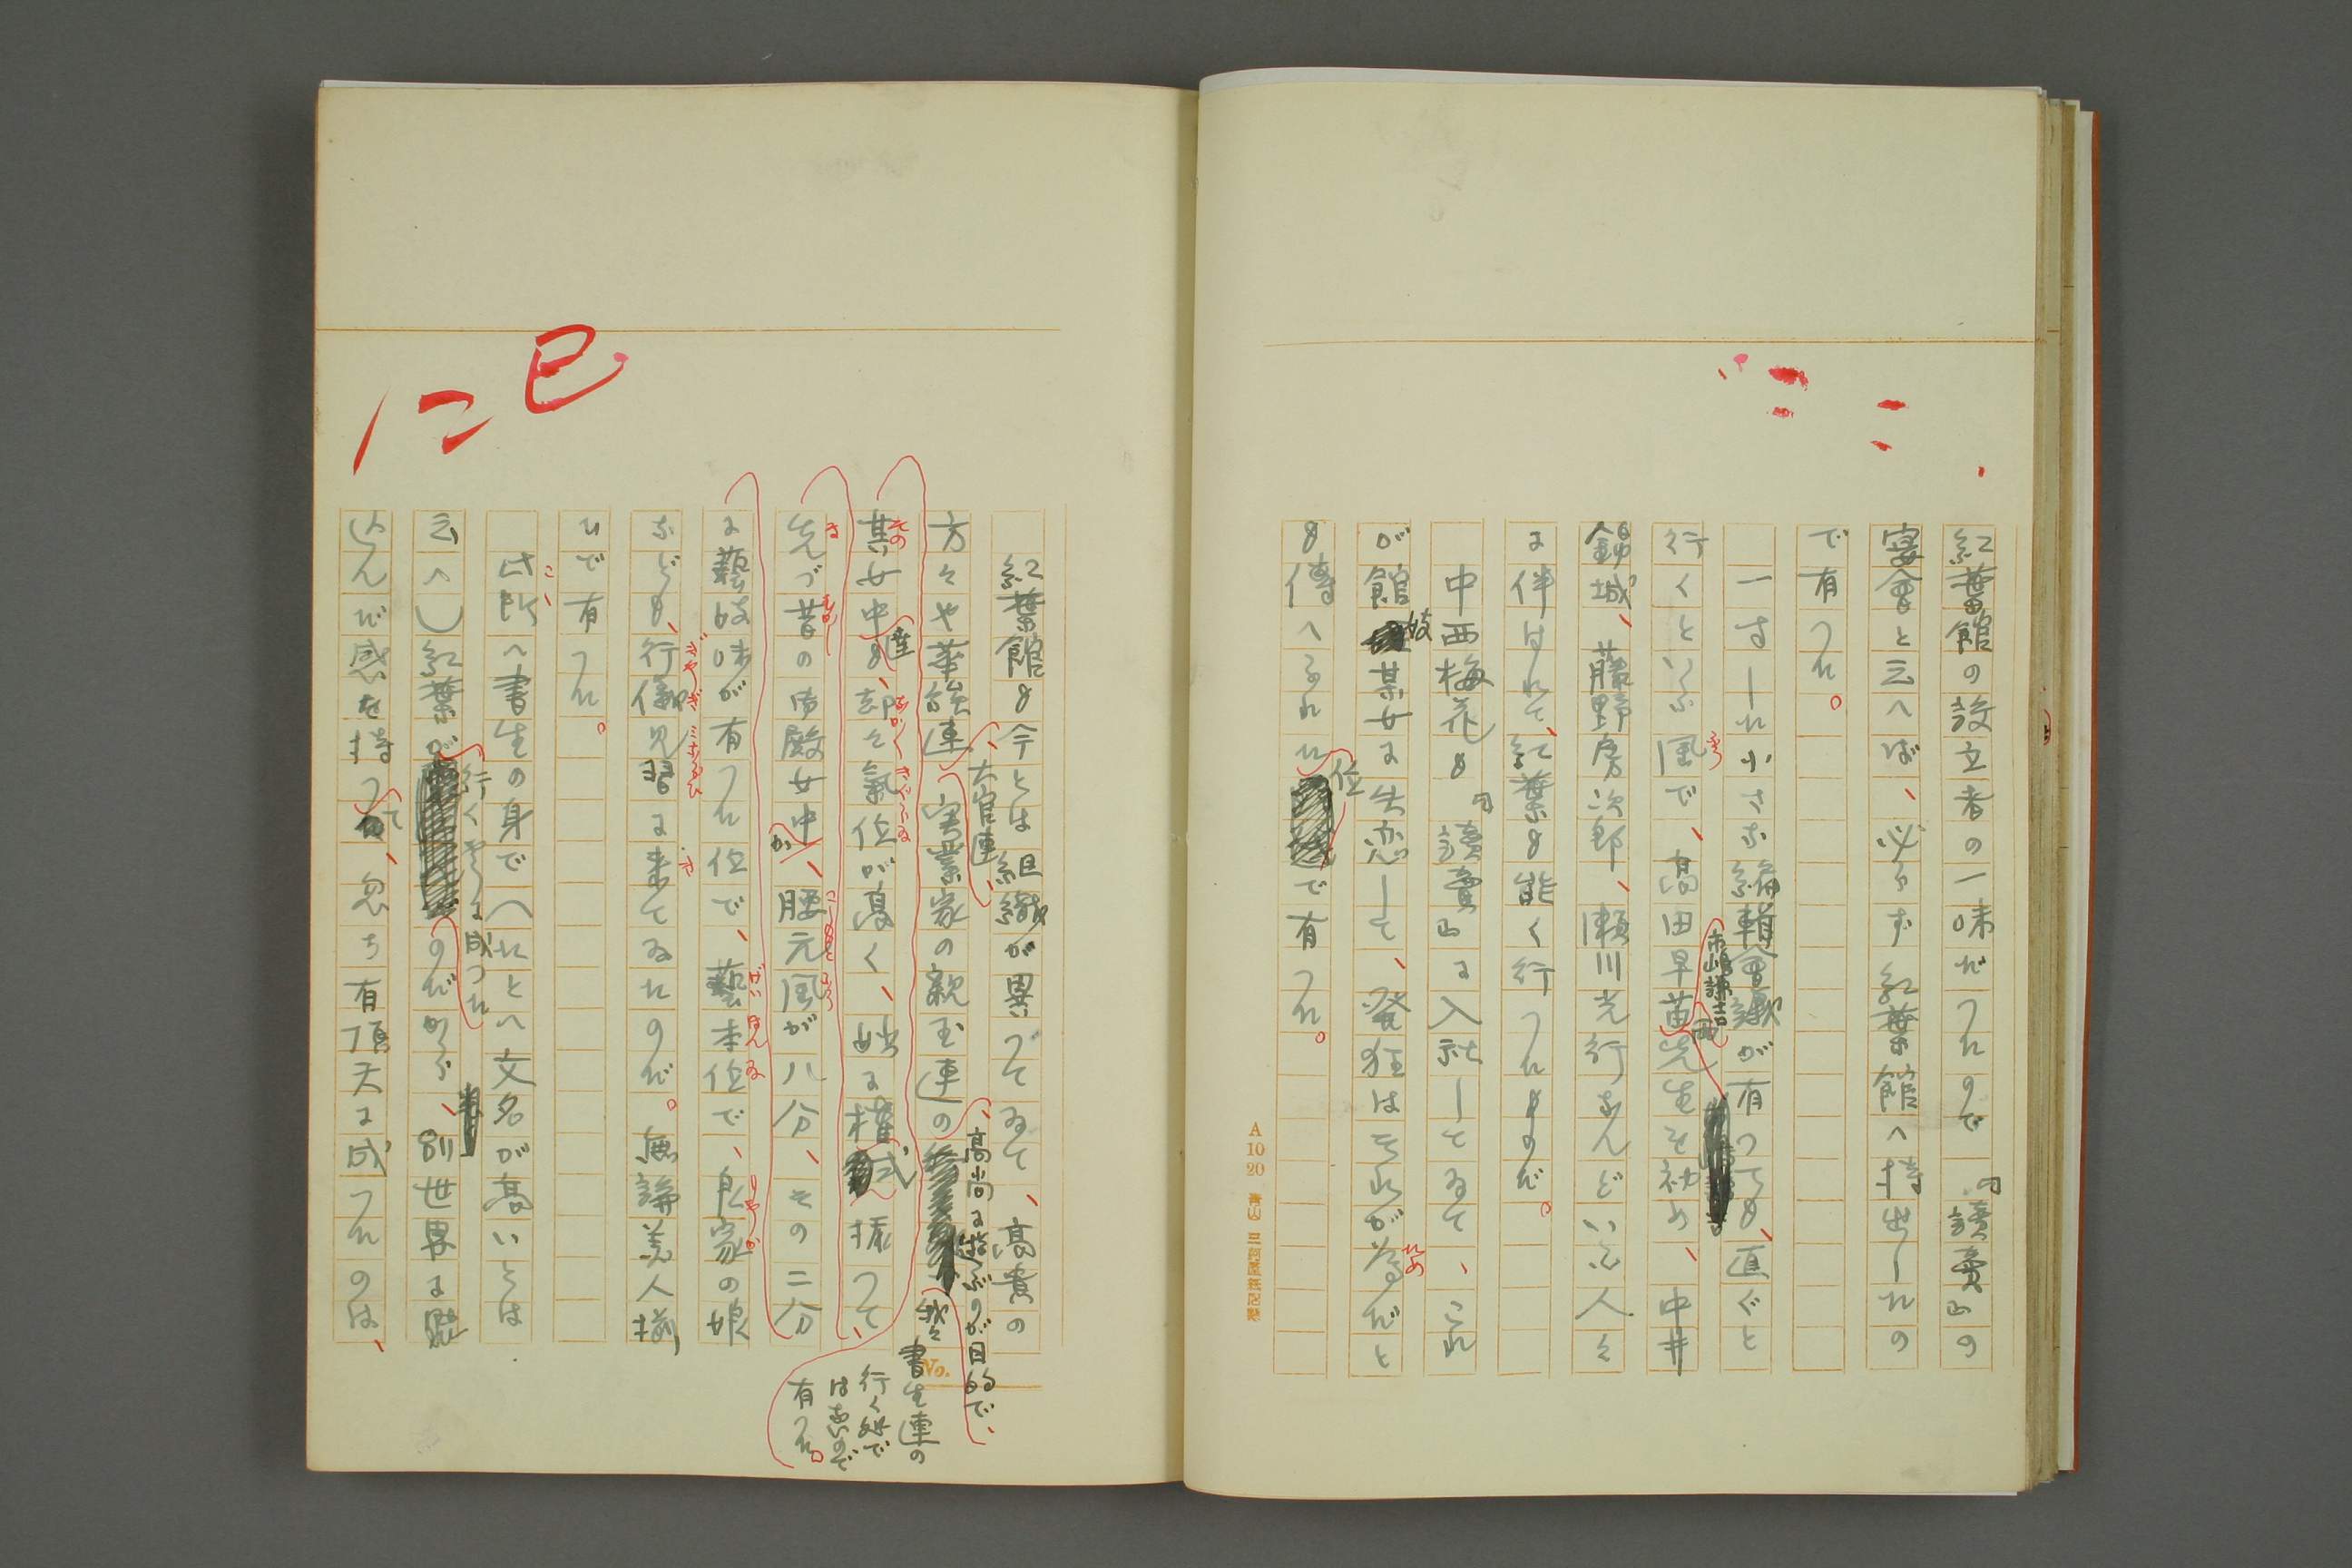 紅葉館の設立者の一味だつたので『讀賣』の
宴會と云へば、必らず紅葉館へ持出したの
で有つた。
一寸した小さな編輯會議が有つても、直ぐと
行くといふ風で、高田早苗市嶋謙吉両先生を初め、中井
錦城、藤野房次郎、瀬川光行なんどいふ人々
に伴はれて、紅葉も能く行つたものだ。
中西梅花も『讀賣』に入社してゐて、これ
が館妓某女に失恋して、発狂はそれが為だと
も傳へられた位で有つた。
A 10 20
紅葉館も今とは組織が異つてゐて、高貴の
方々や華族連、大官連、実業家の親玉連の、高尚に遊ぶのが目的で、我々書生連の行く処ではないので有つた。
其女中達も、却々氣位が高く、妙に権式振つて、
先づ昔の御殿女中か、腰元風が八分、その二分
に藝妓味が有つた位で、藝本位で、良家の娘
なども、行儀見習に来てゐたのだ。無論美人揃
ひで有つた。
此所へ書生の身で(たとへ文名が高いとは
云へ)紅葉が行くやうに成つたのだから、別世界に飛
込んだ感を持つて、忽ち有頂天に成つたのは、
No.